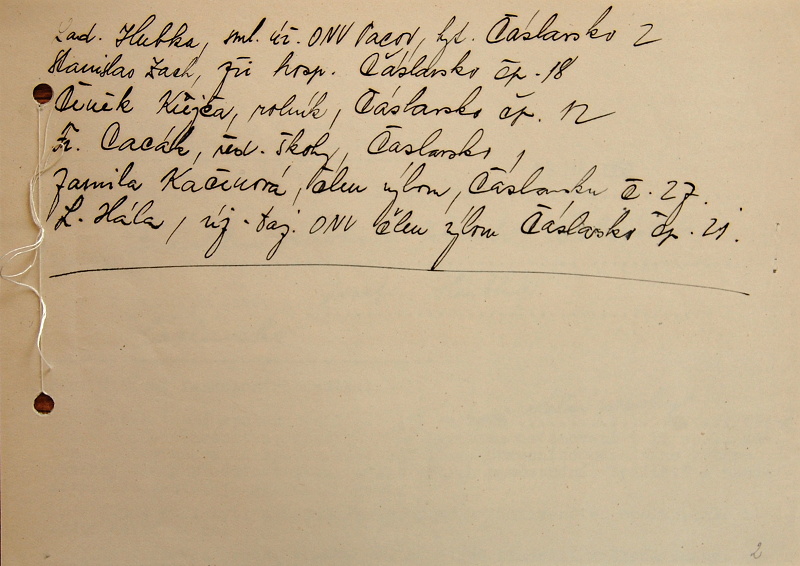 Lad. Hubka, sml. úř. ONV Pacov, byt. Čáslavsko 2
Stanislav Zach, při hosp. Čáslavsko čp. 18
Čeněk Křejča, rolník, Čáslavsko čp. 12
Fr. Cacák, řed. školy, Čáslavsko,
Jarmila Kačenová, člen výbom, Čáslavsko č. 27.
L. Hála, új. taj. ONV člen výbom Čáslavsko čp. 21.
2